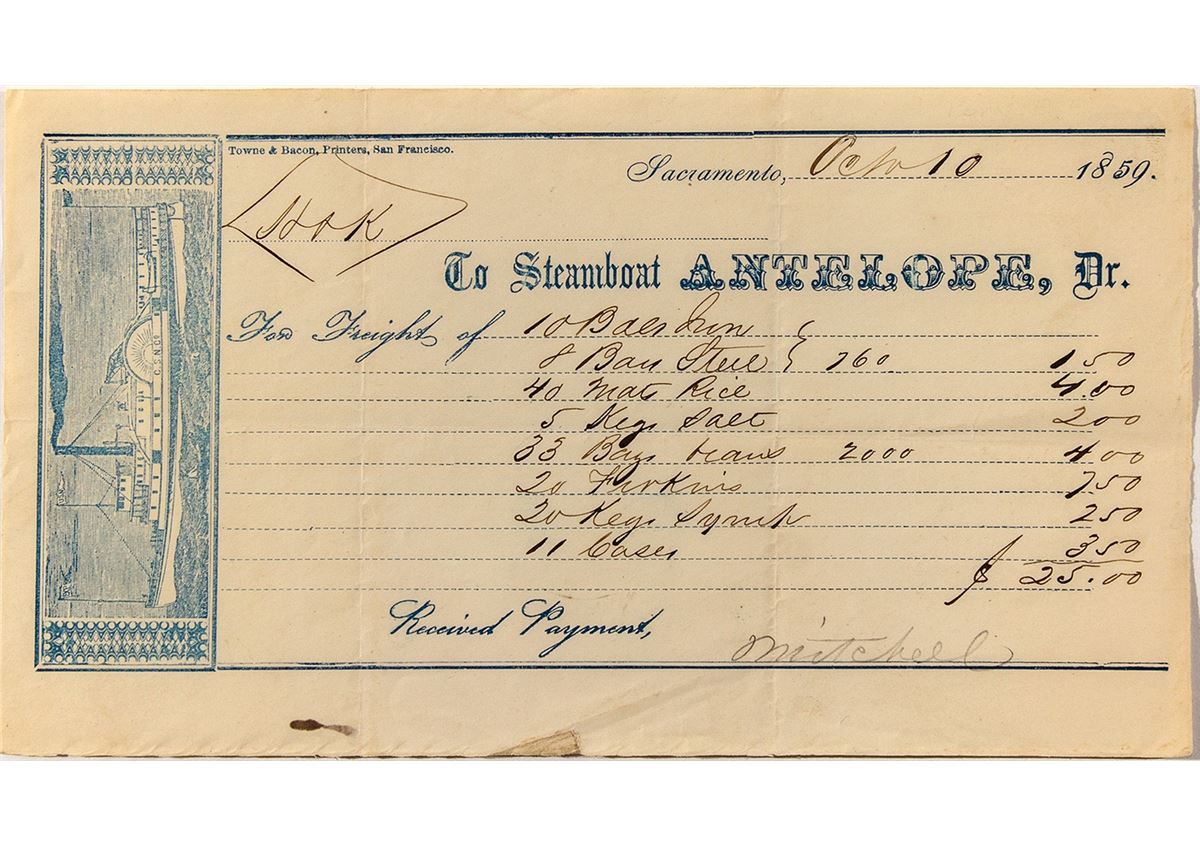 Towne & Bacon, Printers, San Francisco.
Sacramento, Octo 10 1859.
H&K
To Steamboat ANTELOPE, Dr.
For Freight of 10 Bars Iron
8 Bars Steel } 760 1.50
40 Mats Rice 4.00
5 Kegs Salt 2 00
33 Bags beans 2000 4 00
20 Firkins 7 50
20 Kegs Syrup 2 50
11 Cases 3 50
$ 25.00
Received Payment,
Mitchell
C.S.N.Co.